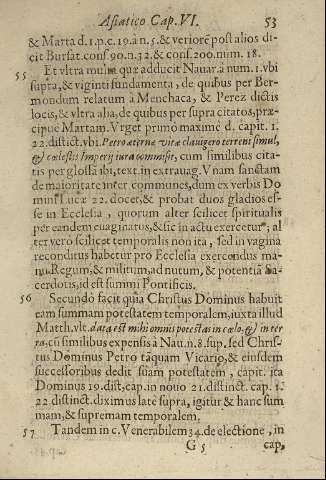 Asiatico Cap. VI. 53
& Marta d. 1. p. c. 19. à n. 5. & veriorē post alios di-
cit Bursat. conf 90. n. 32. & conf. 200. num. 18.
55 Et vltra multa quæ adducit Nauar. à num. 1. vbi
supra, & viginti fundamenta, de quibus per Ber-
mondum relatum à Menchaca, & Perez dictis
locis, & vltra alia, de quibus per supra citatos, præ-
cipuè Martam. Vrget primò maximè d. capit. 1.
22. distinct. vbi. Petro æternæ vitæ clauigero terreni simul,
& cœlestis Imperij iura commisit, cum similibus cita-
tis per glossā ibi, text. in extrauag. Vnam sanctam
de maioritate inter communes, dum ex verbis Do
mini Lucæ 22. docet, & probat duos gladios es-
se in Ecclesia, quorum alter scilicet spiritualis
per eandem euaginatus, & sic in actu exercetur, al
ter verò scilicet temporalis non ita, sed in vagina
reconditus habetur pro Ecclesia exercendus ma-
nu Regum, & militum, ad nutum, & potentiā Sa-
cerdotis, id est summi Pontificis.
56 Secundò facit quia Christus Dominus habuit
eam summam potestatem temporalem, iuxta illud
Matth. vlt. data est mihi omnis potestas in cœlo, & in ter
ra, cū similibus expensis à Nau. n. 8. sup. sed Chris-
tus Dominus Petro tāquam Vicario, & eiusdem
successoribus dedit suam potestatem, capit. ita
Dominus 19. dist. cap. in nouo 21. distinct. cap. 1.
22 distinct. diximus latè supra, igitur & hanc sum
mam, & supremam temporalem.
57 Tandem in c. Venerabilem 34. de electione, in
G 5 cap,